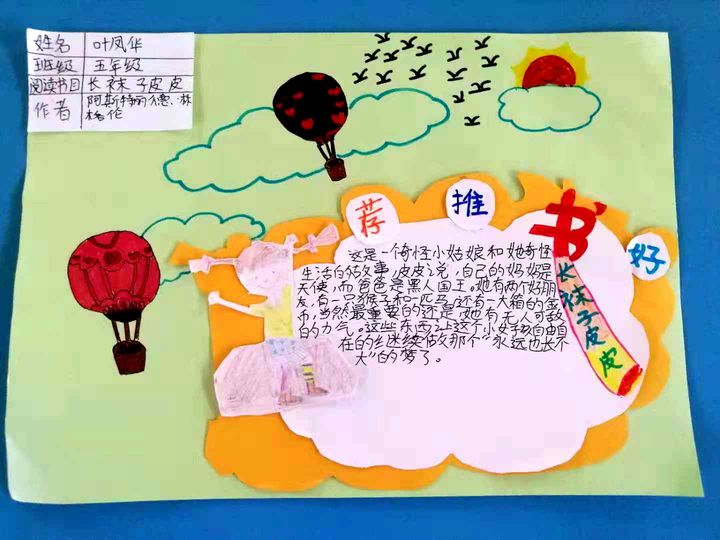 姓名 叶凤华
班级 五年级
阅读书目 长袜子皮皮
作者 阿斯特丽德·林格伦
好书推荐
长袜子皮皮
这是一个奇怪小姑娘和她奇怪
生活的故事,皮皮说,自己的妈妈是
天使,而爸爸是黑人国王。她有两个好朋
友,有一只猴子和一匹马,还有一大箱的金
币,当然最重要的还是,她有无人可敌
的力气。这些东西让这个小女孩自由自
在的继续做那个“永远也长不
大”的梦了。